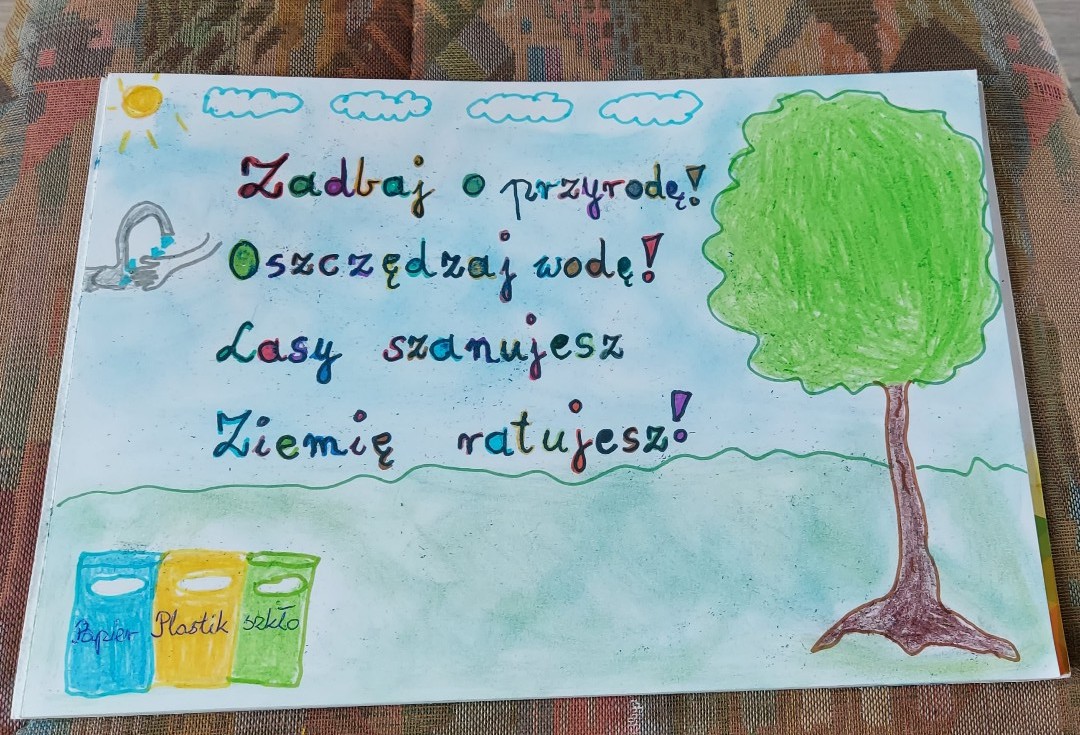 Zadbaj o przyrodę!
Oszczędzaj wodę!
Lasy szanujesz
Ziemię ratujesz!
Papier Plastik szkło